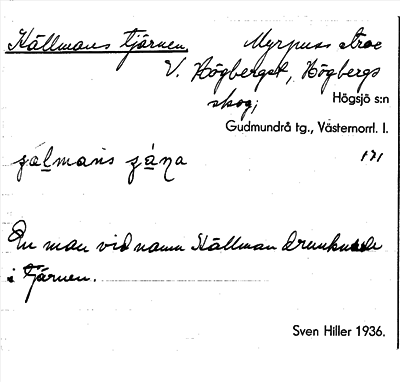 Källmans tjärnen. Myrpuss troe
V. Högberget, Högbergs
skog;
Högsjö s:n
Gudmundrå tg., Västernorrl. l.
171
En man vid namn Källman drunknade
i tjärnen.
Sven Hiller 1936.